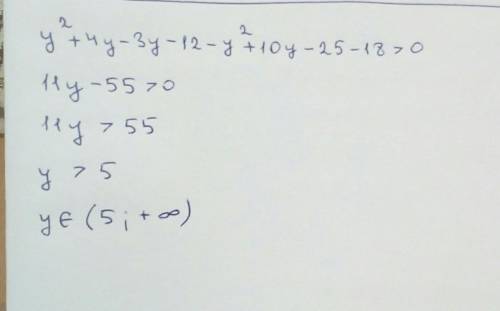 y² + 4y - 3y - 12 - y² + 10y - 25 - 18 > 0
11y - 55 > 0
11y > 55
y > 5
y ∈ (5; +∞)